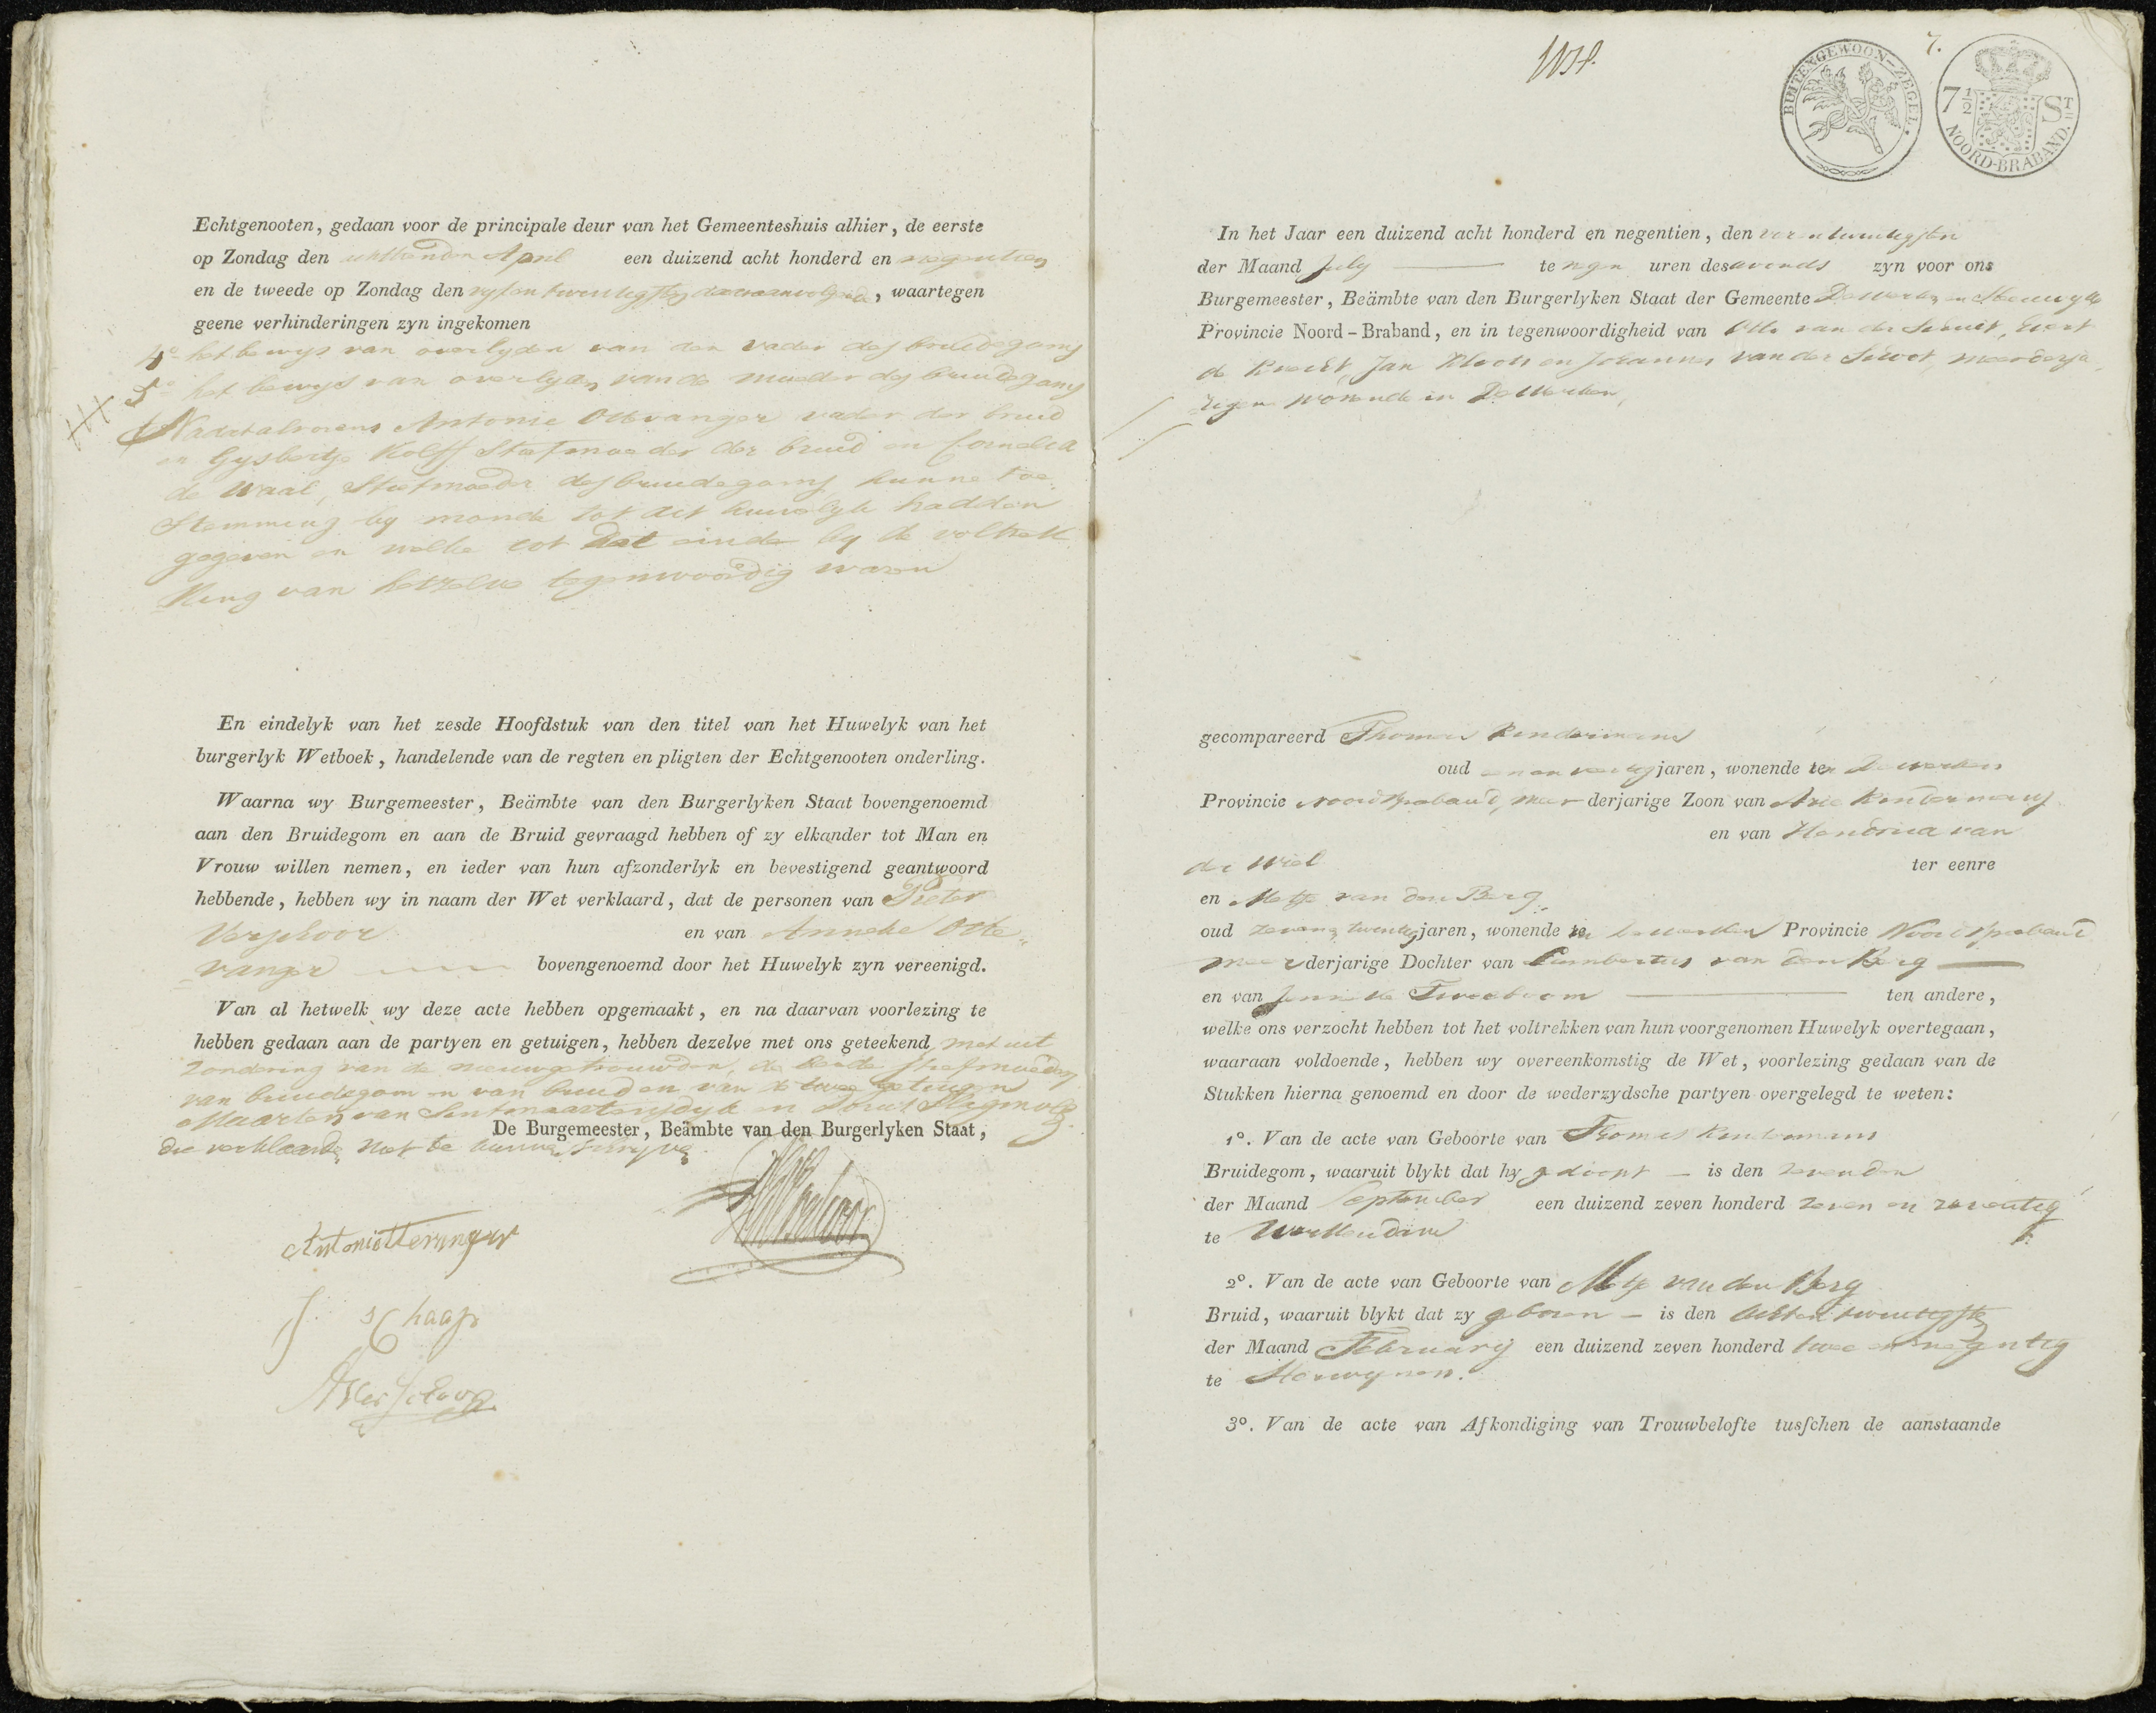 Echtgenooten, gedaan voor de principale deur van het Gemeenteshuis alhier, de eerste
op Zondag den achttienden April een duizend acht honderd en negentien
en de tweede op Zondag den vyfentwentigsten daaraanvolgende, waartegen
geene verhinderingen zyn ingekomen
4o het bewys van overlyden van den vader des bruidegoms
5o het bewys van overlyden van de moeder des bruidegoms
Nadatalvorens Antonie Ottevanger vader der bruid
en Gysbertje Kolff Stiefmoeder der bruid en Cornelia
de Waal, Stiefmoeder des bruidegoms hunne toe
Stemming by monde tot dit huwelyk hadden
gegeven en welke tot dat einde by de voltrek
king van hetzelve tegenwoordig waren
En eindelyk van het zesde Hoofdstuk van den titel van het Huwelyk van het
burgerlyk Wetboek, handelende van de regten en pligten der Echtgenooten onderling.
Waarna wy Burgemeester, Beämbte van den Burgerlyken Staat bovengenoemd
aan den Bruidegom en aan de Bruid gevraagd hebben of zy elkander tot Man en
Vrouw willen nemen, en ieder van hun afzonderlyk en bevestigend geantwoord
hebbende, hebben wy in naam der Wet verklaard, dat de personen van Pieter
Verschoor en van Anneke Otte„
vanger bovengenoemd door het Huwelyk zyn vereenigd.
Van al hetwelk wy deze acte hebben opgemaakt, en na daarvan voorlezing te
hebben gedaan aan de partyen en getuigen, hebben dezelve met ons geteekend, met uit
zondering van de nieuwgetrouwden, de beide stiefmoeders
van bruidegom en van bruid en van de twee getuigen
Maarten van Sintmaartensdyk en
die verklaarden niet te kunnen schryven.
De Burgemeester, Beämbte van den Burgerlyken Staat,
Antonie Ottevanger
J: Schaap
A Verschoor
7.
BUITENGEWOON-ZEGEL.
7½ ST
NOORD-BRABAND.
In het Jaar een duizend acht honderd en negentien, den vierentwintigsten
der Maand July te negen uren des avonds zyn voor ons
Burgemeester, Beämbte van den Burgerlyken Staat der Gemeente De Werken en Sleeuwyk
Provincie Noord-Braband, en in tegenwoordigheid van Otto van der, Evert
de, Jan en Johannes van der, meerderja„
rigen wonende in De Werken,
gecompareerd Thomas Kendermans
oud een en veertig jaren, wonende in De Werken
Provincie Noord Braband, meerderjarige Zoon van Arie Kendermans
en van Hendrica van
der Wiel ter eenre
en Metje van den Berg
oud zeven en twentig jaren, wonende in De Werken Provincie Noord Braband
meerderjarige Dochter van Lambertus van den Berg
en van Jenneke ten andere,
welke ons verzocht hebben tot het voltrekken van hun voorgenomen Huwelyk overtegaan,
waaraan voldoende, hebben wy overeenkomstig de Wet, voorlezing gedaan van de
Stukken hierna genoemd en door de wederzydsche partyen overgelegd te weten:
1o. Van de acte van Geboorte van Thomas Kendermans
Bruidegom, waaruit blykt dat hy gedoopt is den zevenden
der Maand September een duizend zeven honderd zeven en zeventig
te Werkendam
2o. Van de acte van Geboorte van Metje van den Berg
Bruid, waaruit blykt dat zy geboren is den achtentwentigste
der Maand February een duizend zeven honderd twee en negentig
te Herwynen.
3o. Van de acte van Afkondiging van Trouwbelofte tusschen de aanstaande